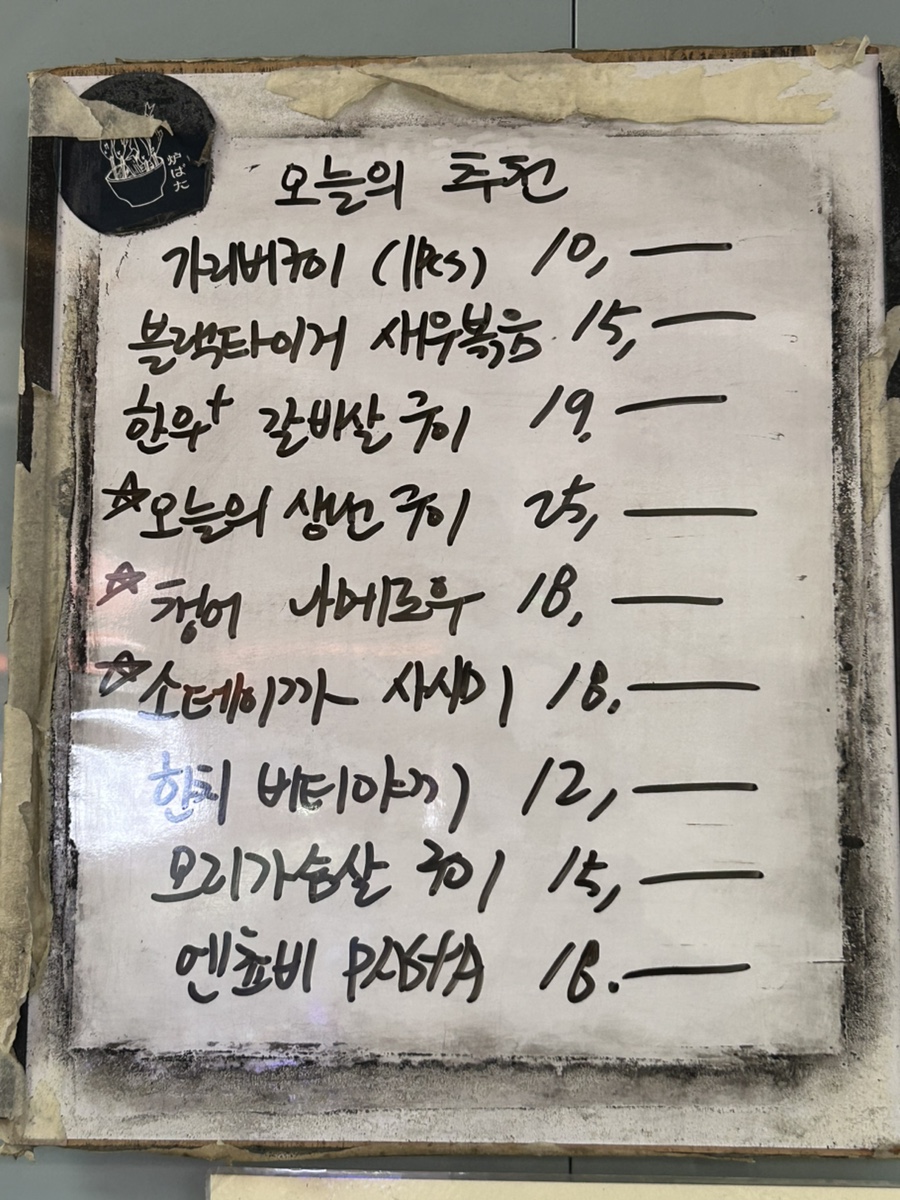 炉ばた
오늘의 추천
가리비구이 (1PCS) 10,—
블랙타이거 새우볶음 15,—
한우+ 갈비살 구이 19.—
☆오늘의 생선 구이 25,—
☆청어 나메로우 18,—
☆소데이까 사시미 18.—
한치 버터야끼 12,—
오리가슴살 구이 15,—
엔쵸비 PASTA 18.—